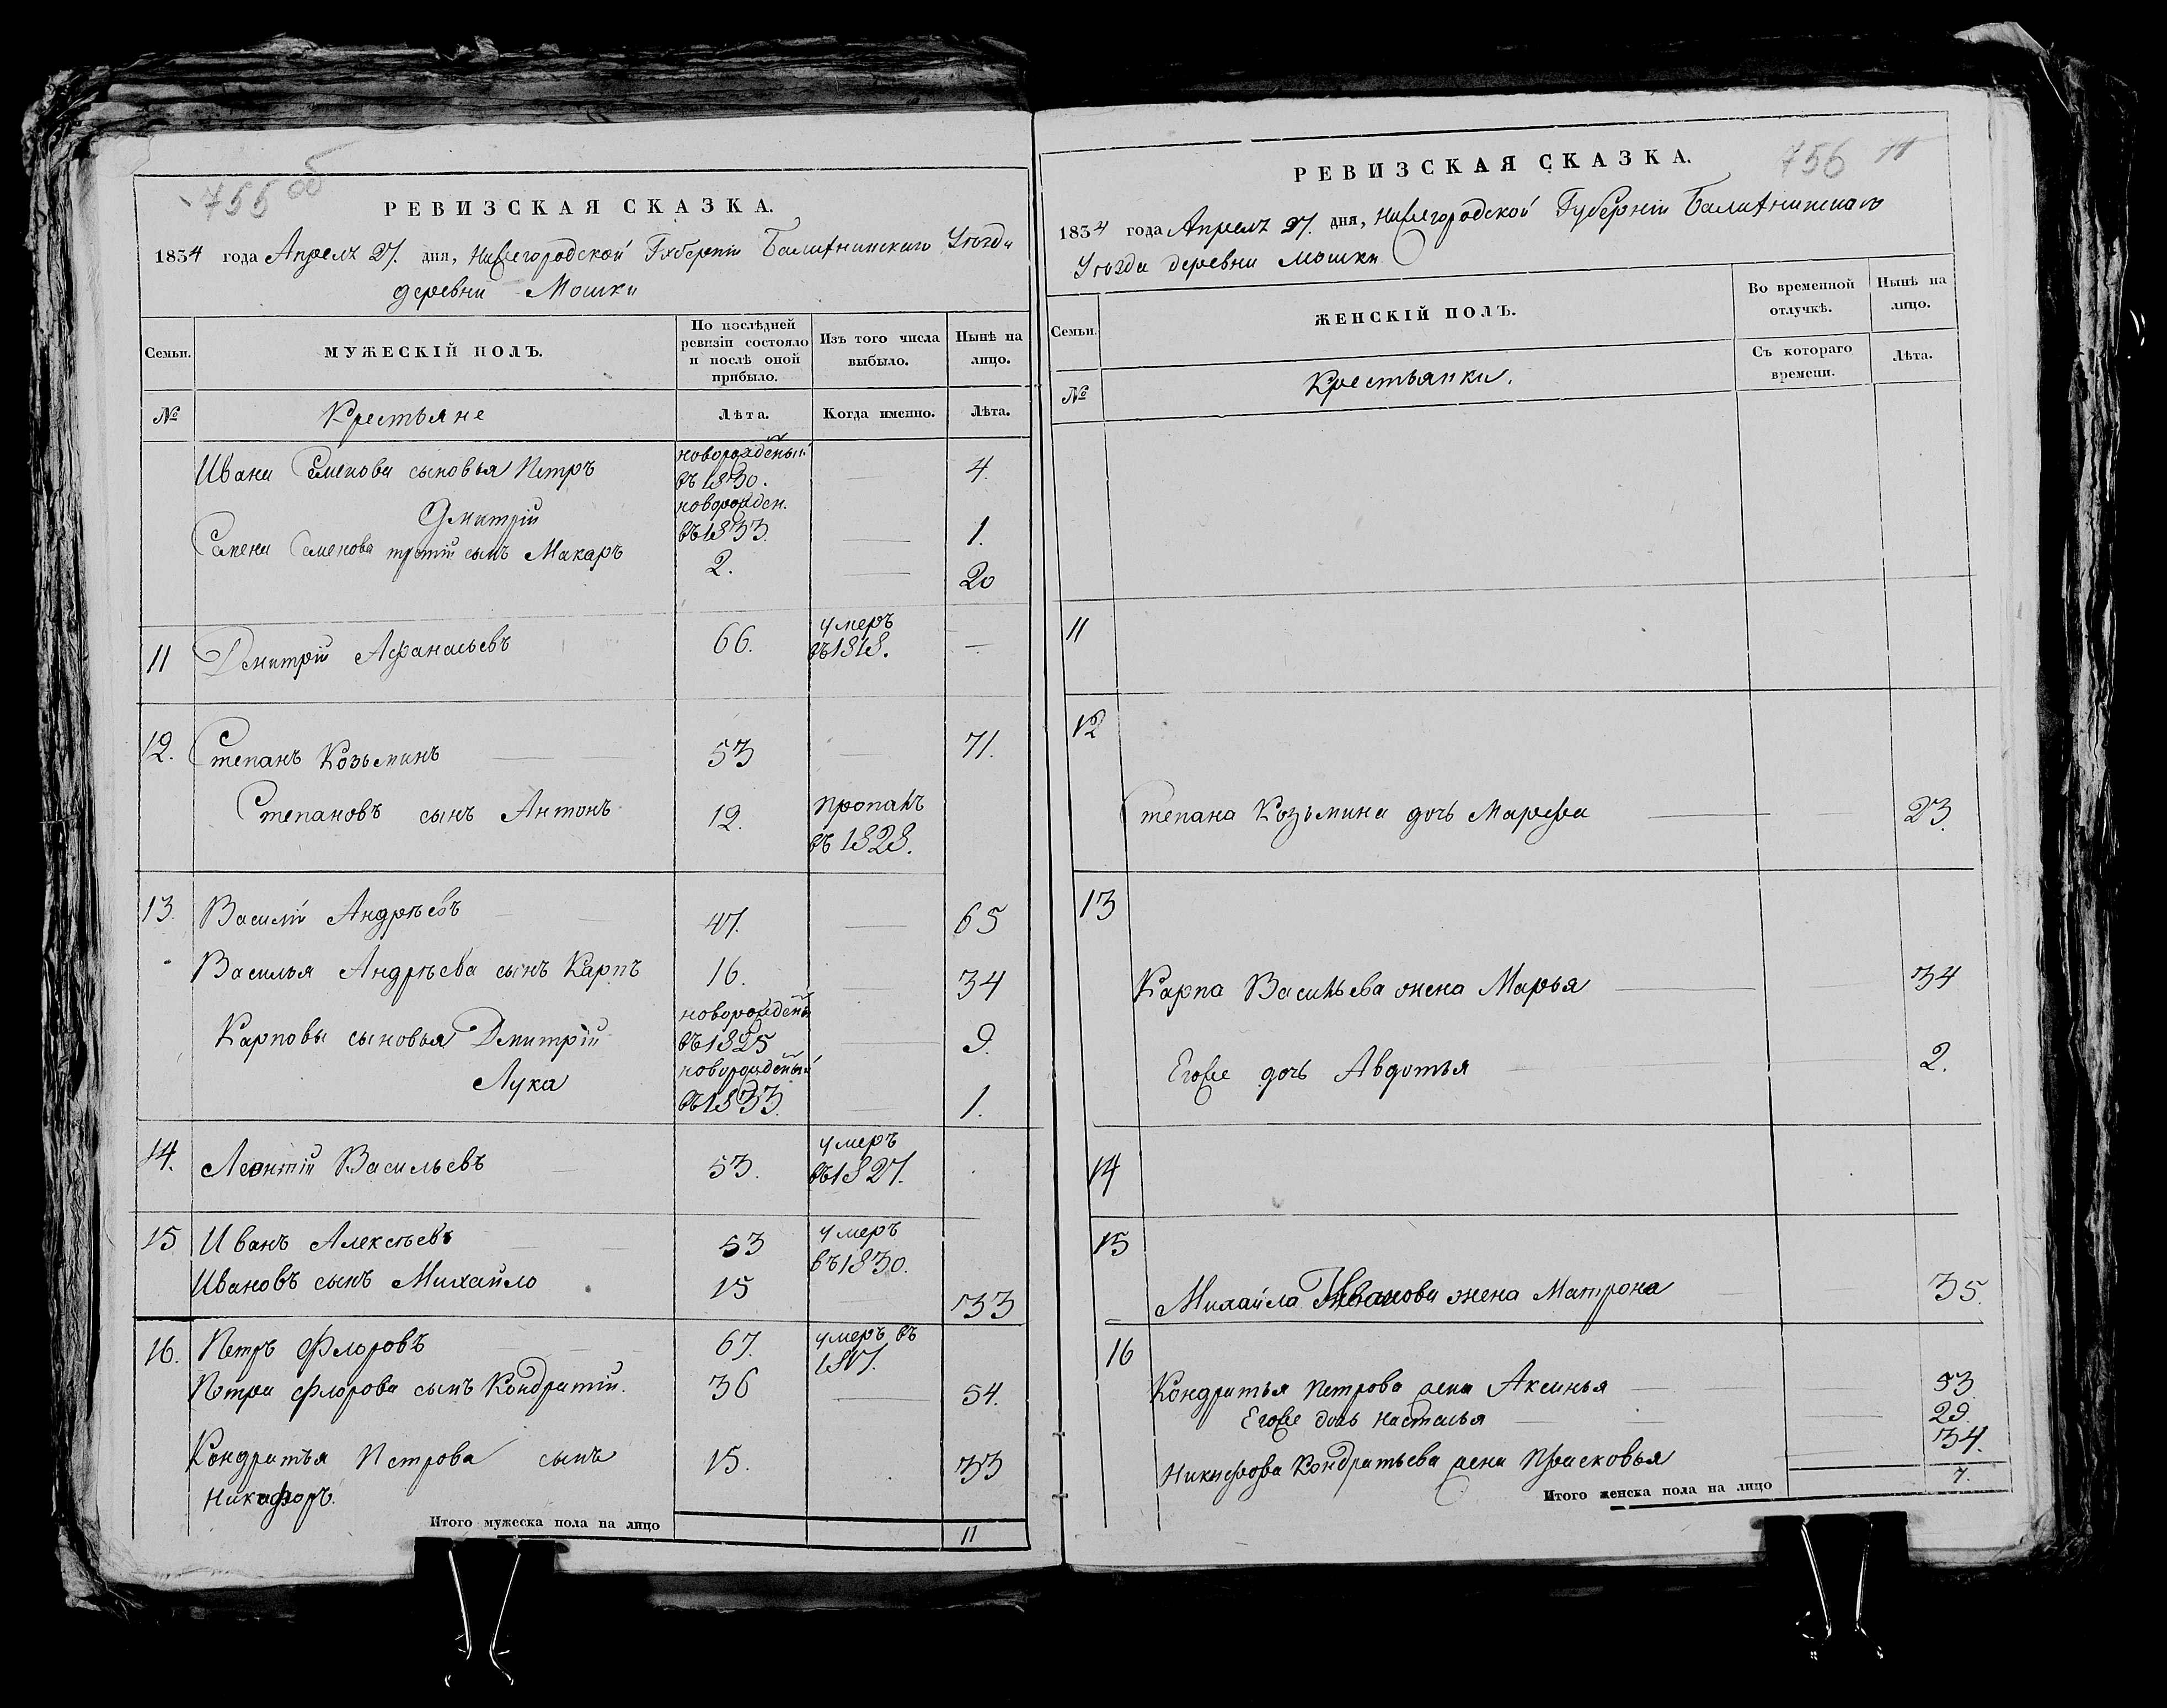 755 об
РЕВИЗСКАЯ СКАЗКА.
1834 года Апреля 27. дня, Нижегородской Губерніи Балахнинскаго Уѣзда
деревни Мошки
Семьи.
МУЖЕСКІЙ ПОЛЪ.
По послѣдней ревизіи состояло и послѣ оной прибыло.
Изъ того числа выбыло.
Нынѣ на лицо.
№
Крестьяне
Лѣта.
Когда именно.
Лѣта.
Ивана Семенова сыновья Петръ новорожденый въ 1830. 4.
Дмитрій новорожден. въ 1833. 1.
Семена Семенова третій сынъ Макаръ 2. 20
11 Дмитрій Афанасьевъ 66. умеръ въ 1818. —
12. Степанъ Козьминъ 53 71.
Степановъ сынъ Антонъ 12. пропалъ въ 1828.
13. Василій Андрѣевъ 47. 65
Василья Андрѣева сынъ Карпъ 16. 34
Карповы сыновья Дмитрій новорожденый въ 1825 9.
Лука новорожденый въ 1833. 1.
14. Леонтій Васильевъ 53. умеръ въ 1827.
15 Иванъ Алексѣевъ 53 умеръ въ 1830.
Ивановъ сынъ Михайло 15 33
16. Петръ Флоровъ 67. умеръ въ 1817.
Петра Флорова сынъ Кондратій. 36 54.
Кондратья Петрова сынъ 15. 33
Никифоръ.
Итого мужеска пола на лицо 11
756
РЕВИЗСКАЯ СКАЗКА.
1834 года Апреля 27. дня, Нижегородской Губерніи Балахнинскаго
Уѣзда деревни Мошки
Семьи.
ЖЕНСКІЙ ПОЛЪ.
Во временной отлучкѣ.
Нынѣ на лицо.
№
Крестьянки.
Съ котораго времени.
Лѣта.
11
12
Степана Козьмина дочь Марфа 23.
13
Карпа Васильева жена Марья 34
Егоже дочь Авдотья 2.
14
15
Михайла Иванова жена Матрона 35.
16
Кондратья Петрова жена Аксинья 53.
Егоже дочь Настасья 29.
Никифора Кондратьева жена Прасковья 34.
Итого женска пола на лицо 7.